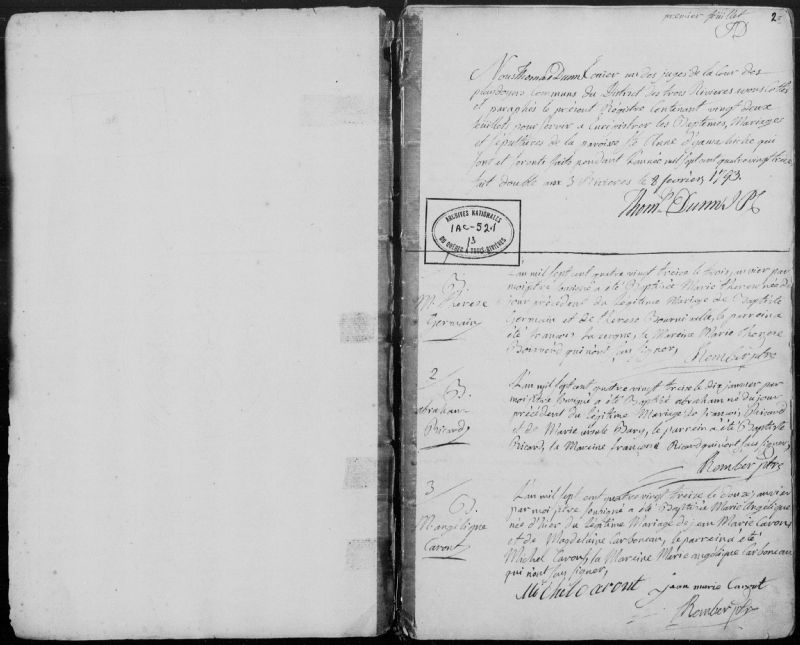 premier feuillet
2
TD
Nous Thomas Dunn Ecuier un des juges de la Cour des
plaidoyers communs du District des trois Rivieres avons cotté
et paraphé le présent Registre contenant vingt deux
feuillets pour servir a Enregistrer les Baptemes, Mariages
et sépultures de la paroisse Ste Anne d'yamachiche qui
sont et seront faits pendant l'année mil sept cent quatre vingt treize
fait double aux 3 Rivieres le 8 fevrier 1793.
Thoms. Dunn J. P.
ARCHIVES NATIONALES
1AC-521
13
DU QUÉBEC TROIS-RIVIÈRES
B.
M. Therese
Germain
L'an mil sept cent quatre vingt treize le trois janvier par
moi ptre soussigné a été Baptisée Marie Therese née du
jour précédent du légitime Mariage de Baptiste
Germain et de Therese le parrein a
été françois la Mareine Marie Therese
qui n'ont su signer, Romber ptre
2
B.
abraham
Ricard
L'an mil sept cent quatre vingt treize le dix janvier par
moi ptre soussigné a été Baptisé abraham né du jour
précédent du légitime Mariage de françois Ricard
et de Marie le parrein a été Baptiste
Ricard, la Mareine françoise Ricard qui n'ont su signer,
Romber ptre
3
B.
M. angelique
Caront
L'an mil sept cent quatre vingt treize le douze janvier
par moi ptre soussigné a été Baptisée Marie Angelique
née d'hier du légitime Mariage de jean Marie Caront
et de Magdelaine Carboneau, le parrein a été
Michel Caront, la Mareine Marie angelique Carboneau
qui n'ont su signer,
Michel Caront jean marie Caront
Romber ptre